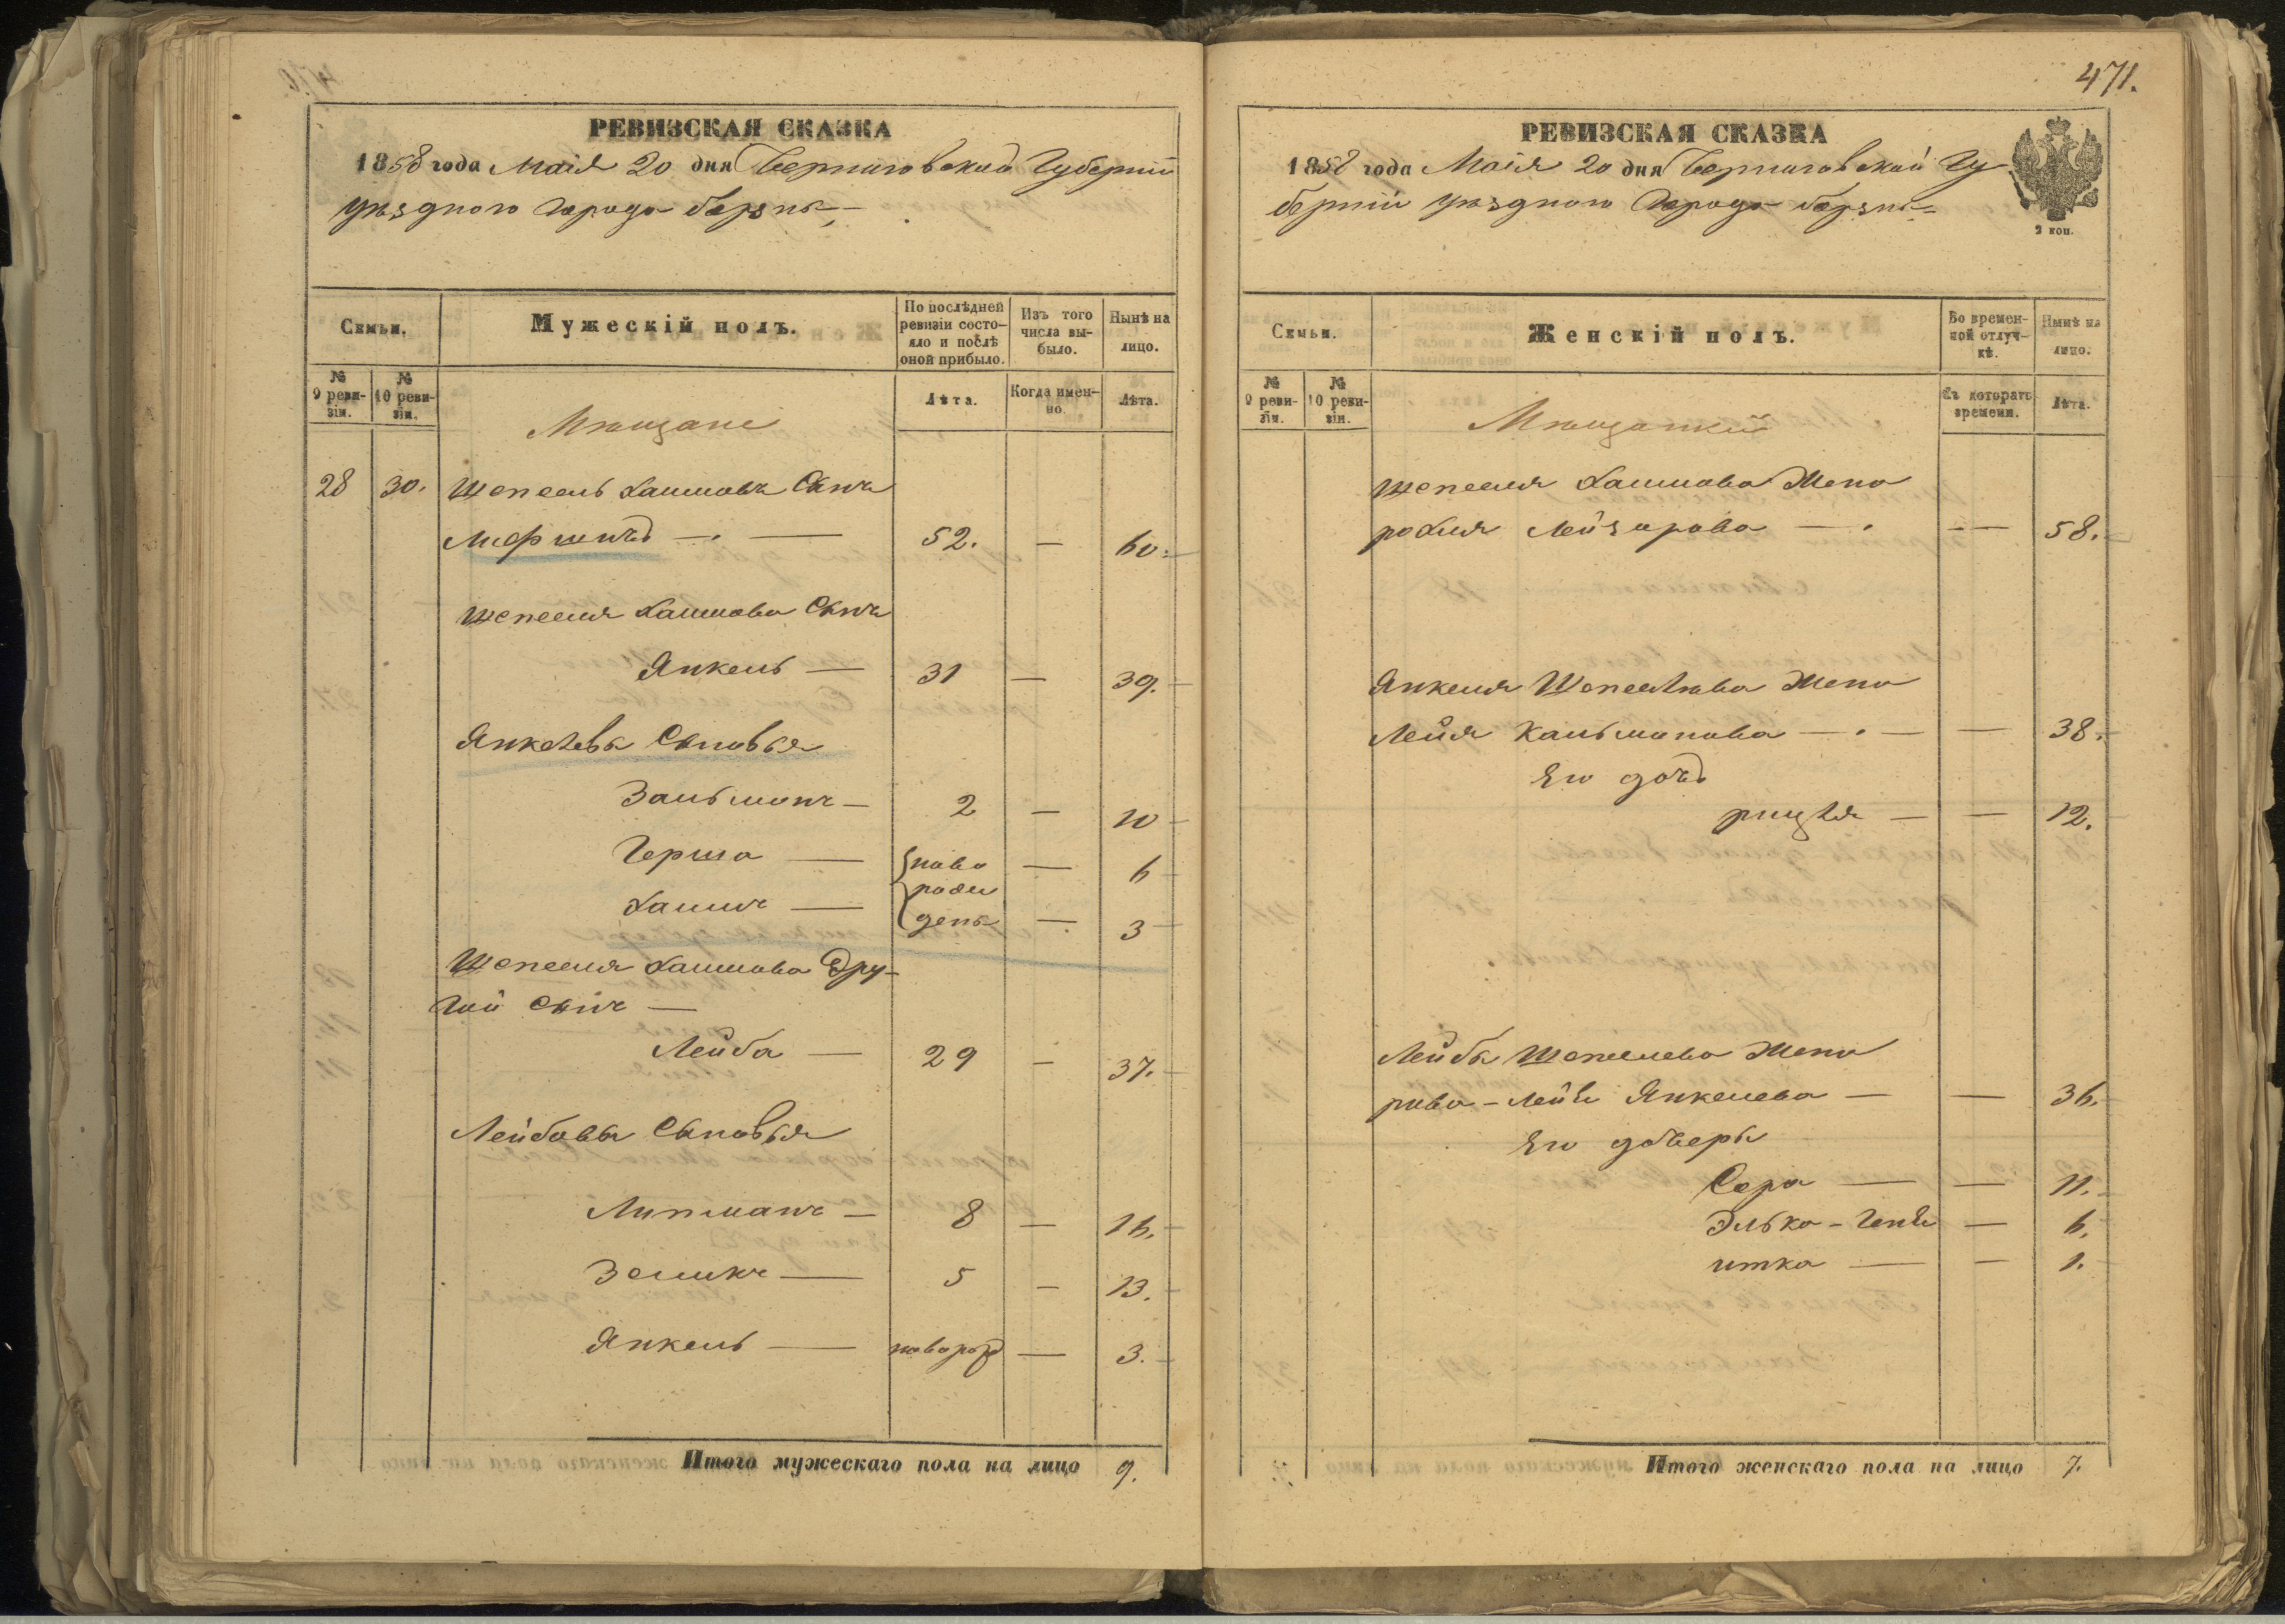 РЕВИЗСКАЯ СКАЗКА
1858 года Маія 20 дня Черниговской Губерніи
уѣзднаго Города Борзны
Семьи.
Мужескій полъ.
По послѣдней ревизіи состояло и послѣ оной прибыло.
Изъ того числа выбыло.
Нынѣ на лицо.
№ 9 ревизіи.
№ 10 ревизіи.
Лѣта.
Когда именно.
Лѣта.
Мѣщане
28 30. Шепсель Хаимовъ Сынъ
52. — 60.
Шепселя Хаимова Сынъ
Янкель — 31 — 39.
Янкелевы Сыновья
Зальманъ — 2 — 10
Герша — ново — 6
Хаимъ — рожденъ — 3
Шепселя Хаимова Дру-
гой Сынъ —
Лейба — 29 — 37.
Лейбовы Сыновья
Липманъ — 8 — 16.
Зеликъ — 5 — 13.
Янкель — новорож — 3.
Итого мужескаго пола на лицо 9.
471.
РЕВИЗСКАЯ СКАЗКА
1858 года Маія 20 дня Черниговской Гу-
берніи уѣзднаго Города Борзны
2 коп.
Семьи.
Женскій полъ.
Во временной отлучкѣ.
Нынѣ на лицо.
№ 9 ревизіи.
№ 10 ревизіи.
Съ котораго времени.
Лѣта.
Мѣщанки
Шепселя Хаимова Жена
Рохля Лейзарова — — 58.
Янкеля Шепселева Жена
Лейя Кальманова — — 38.
Его дочь
— — 12.
Лейбы Шепселева Жена
Рива-Лейя Янкелева — — 36.
Его дочери
Сора — — 11.
Элька-Геня — 6.
Итка — — 1.
Итого женскаго пола на лицо 7.